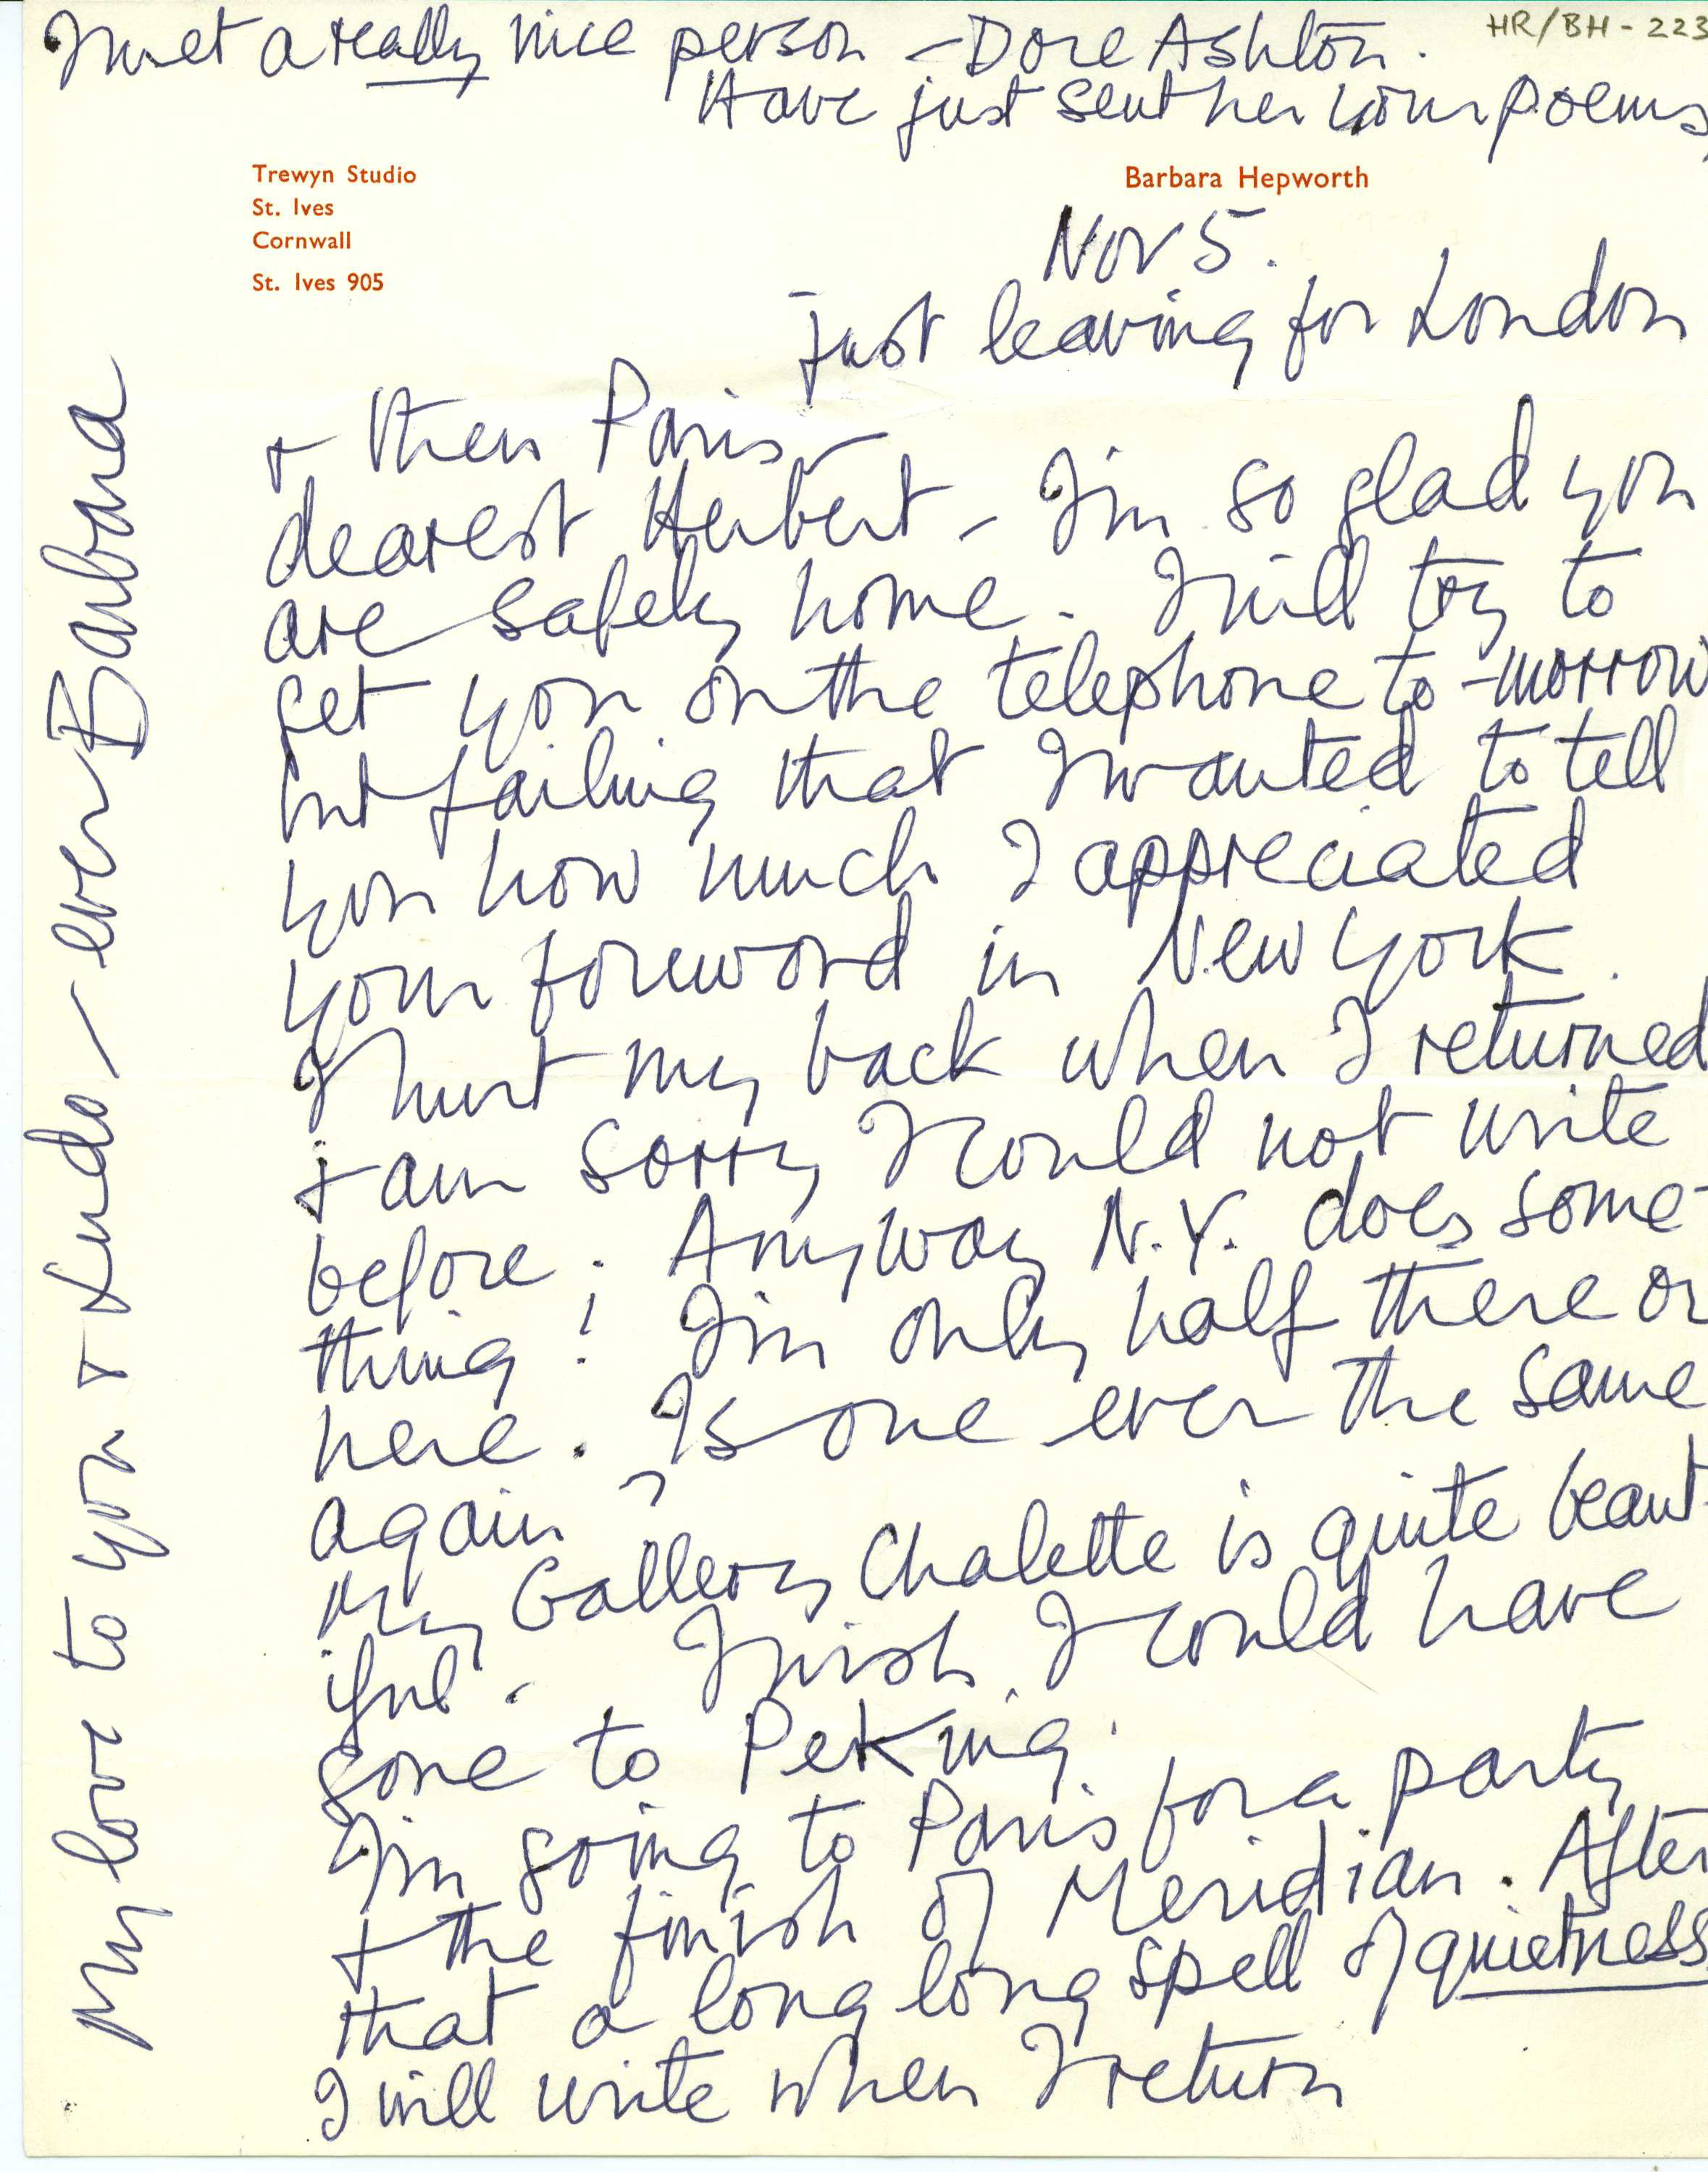 HR/BH - 223
I met a really nice person - Dore Ashton.
Have just sent her your poems
Trewyn Studio
St. Ives
Cornwall
St. Ives 905
Barbara Hepworth
Nov 5.
Just leaving for London
+ then Paris -
dearest Herbert - I'm so glad you
are safely home. I will try to
get you on the telephone to-morrow
but failing that I wanted to tell
you how much I appreciated
your foreword in New York.
I hurt my back when I returned
+ am sorry I could not write
before. Anyway N.Y. does some-
thing! I'm only half there or
here. Is one ever the same
again?
My Gallery Chalette is quite beaut-
iful. I wish I could have
gone to Peking.
I'm going to Paris for a party
+ the finish of Meridian. After
that a long long spell of quietness
I will write when I return
My love to you + Ludo - ever Barbara